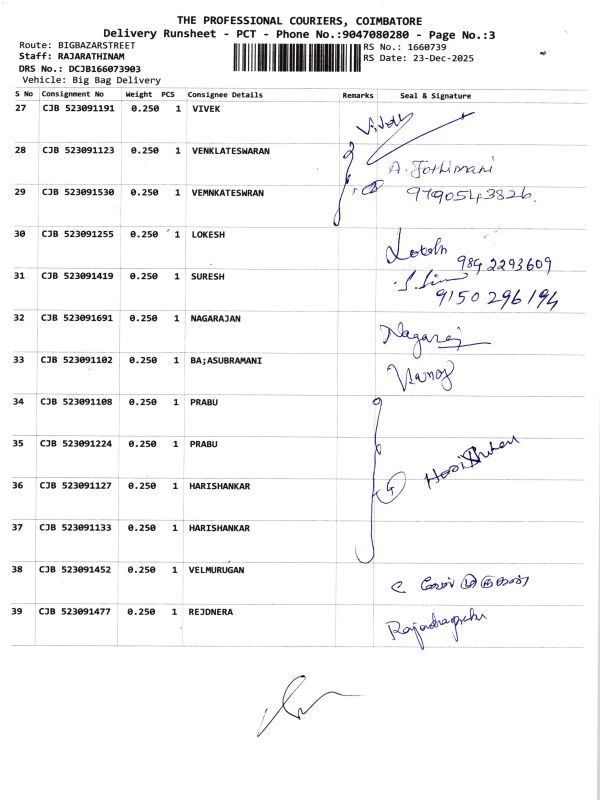 THE PROFESSIONAL COURIERS, COIMBATORE
Delivery Runsheet - PCT - Phone No.:9047080280 - Page No.:3
Route: BIGBAZARSTREET
RS No.: 1660739
Staff: RAJARATHINAM
RS Date: 23-Dec-2025
DRS No.: DCJB166073903
Vehicle: Big Bag Delivery
S No Consignment No Weight PCS Consignee Details Remarks Seal & Signature
27 CJB 523091191 0.250 1 VIVEK
28 CJB 523091123 0.250 1 VENKLATESWARAN
A. Jothimani
29 CJB 523091530 0.250 1 VEMNKATESWRAN
9790543826.
30 CJB 523091255 0.250 1 LOKESH
9842293609
31 CJB 523091419 0.250 1 SURESH
9150296194
32 CJB 523091691 0.250 1 NAGARAJAN
Nagaraj
33 CJB 523091102 0.250 1 BA;ASUBRAMANI
34 CJB 523091108 0.250 1 PRABU
35 CJB 523091224 0.250 1 PRABU
36 CJB 523091127 0.250 1 HARISHANKAR
37 CJB 523091133 0.250 1 HARISHANKAR
38 CJB 523091452 0.250 1 VELMURUGAN
39 CJB 523091477 0.250 1 REJDNERA